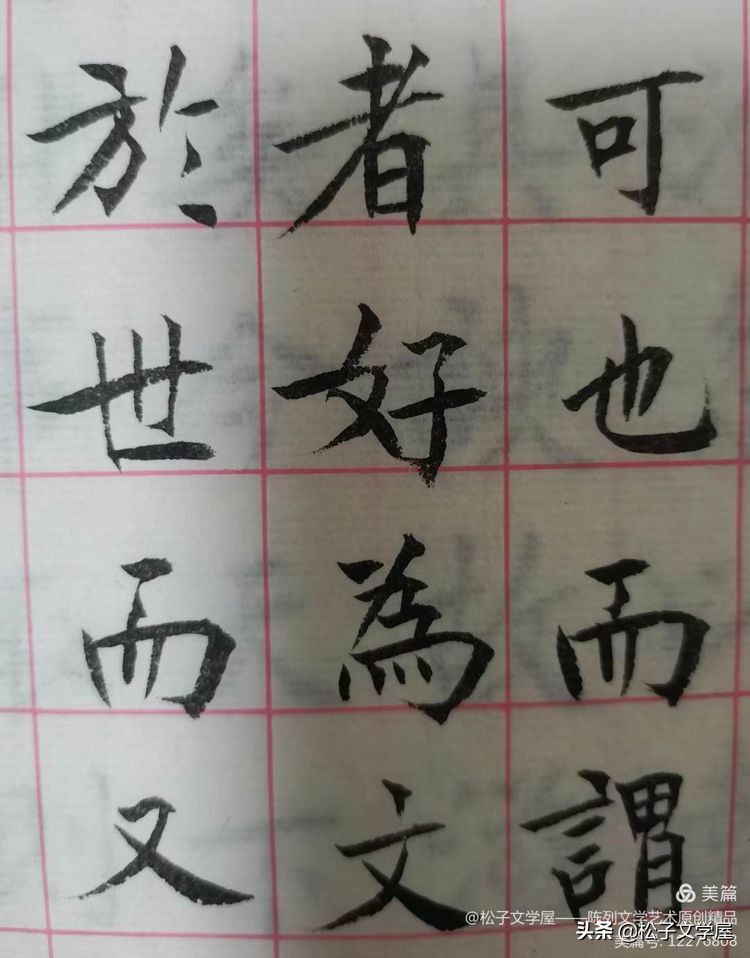 可也而謂
者好為文
於世而又
美篇
@松子文学屋——陈列文学艺术原创精品
头条 @松子文学屋